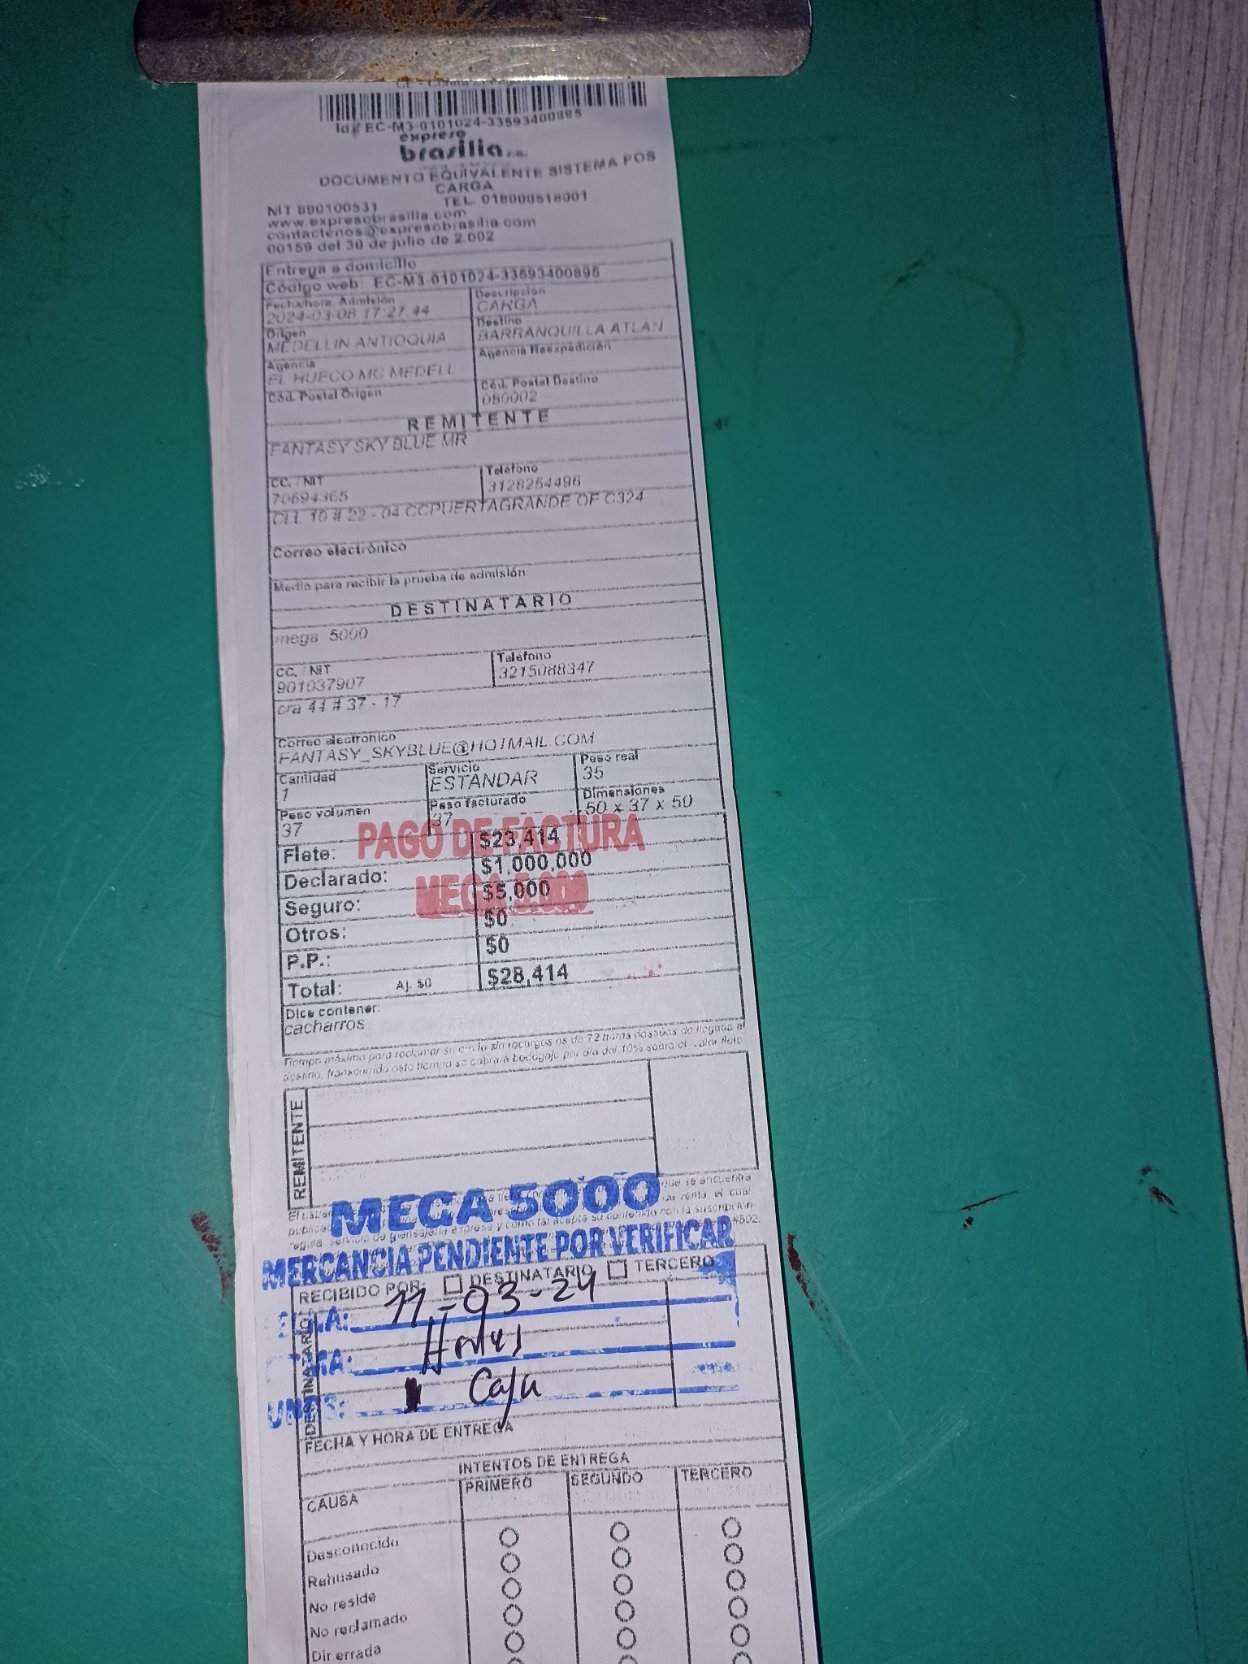 Id# EC-M3-0101024-33593400895
expreso
brasilia s.a.
DOCUMENTO EQUIVALENTE SISTEMA POS
CARGA
NIT 890100531 TEL. 018000518001
www.expresobrasilia.com
contactenos@expresobrasilia.com
00159 del 30 de julio de 2.002
Entrega a domicilio
Código web: EC-M3-0101024-33593400895
Fecha/hora. Admisión Descripción
2024-03-06 17:27:44 CARGA
Origen Destino
MEDELLIN ANTIOQUIA BARRANQUILLA ATLAN
Agencia Agencia Reexpedición
EL HUECO MC MEDELL
Cód. Postal Origen Cód. Postal Destino
080002
REMITENTE
FANTASY SKY BLUE MR
CC. / NIT Teléfono
70694365 3128254496
CLL 10 # 22 - 04 CCPUERTAGRANDE OF C324
Correo electrónico
Medio para recibir la prueba de admisión
DESTINATARIO
mega 5000
CC. / NIT Teléfono
901037907 3215088347
cra 44 # 37 - 17
Correo electrónico
FANTASY_SKYBLUE@HOTMAIL.COM
Cantidad Servicio Peso real
1 ESTANDAR 35
Peso volumen Peso facturado Dimensiones
37 37 50 x 37 x 50
PAGO DE FACTURA
MEGA 5.000
Flete: $23,414
Declarado: $1,000,000
Seguro: $5,000
Otros: $0
P.P.: $0
Total: Aj. $0 $28,414
Dice contener:
cacharros
Tiempo máximo para reclamar su envío sin recargos es de 72 horas después de llegada al
destino, transcurrido este tiempo se cobrará bodegaje por día del 10% sobre el valor flete
REMITENTE
MEGA 5000
MERCANCIA PENDIENTE POR VERIFICAR
RECIBIDO POR: DESTINATARIO TERCERO
11-03-24
1 Caja
UNDS:
DESTINATARIO
FECHA Y HORA DE ENTREGA
INTENTOS DE ENTREGA
CAUSA PRIMERO SEGUNDO TERCERO
Desconocido
Rehusado
No reside
No reclamado
Dir errada